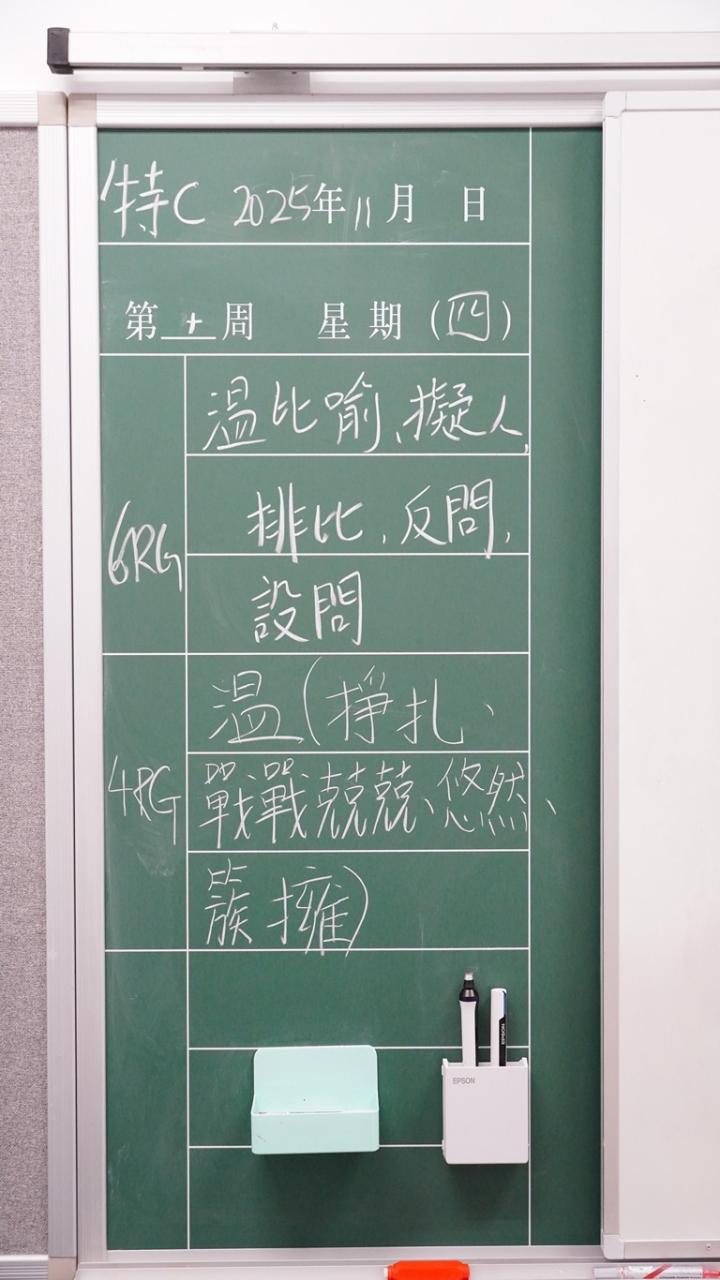 特C 2025年11月 日
第十周 星期(四)
6RG
温比喻、擬人,
排比,反問,
設問
4RG
温(掙扎、
戰戰兢兢、悠然、
簇擁)
EPSON